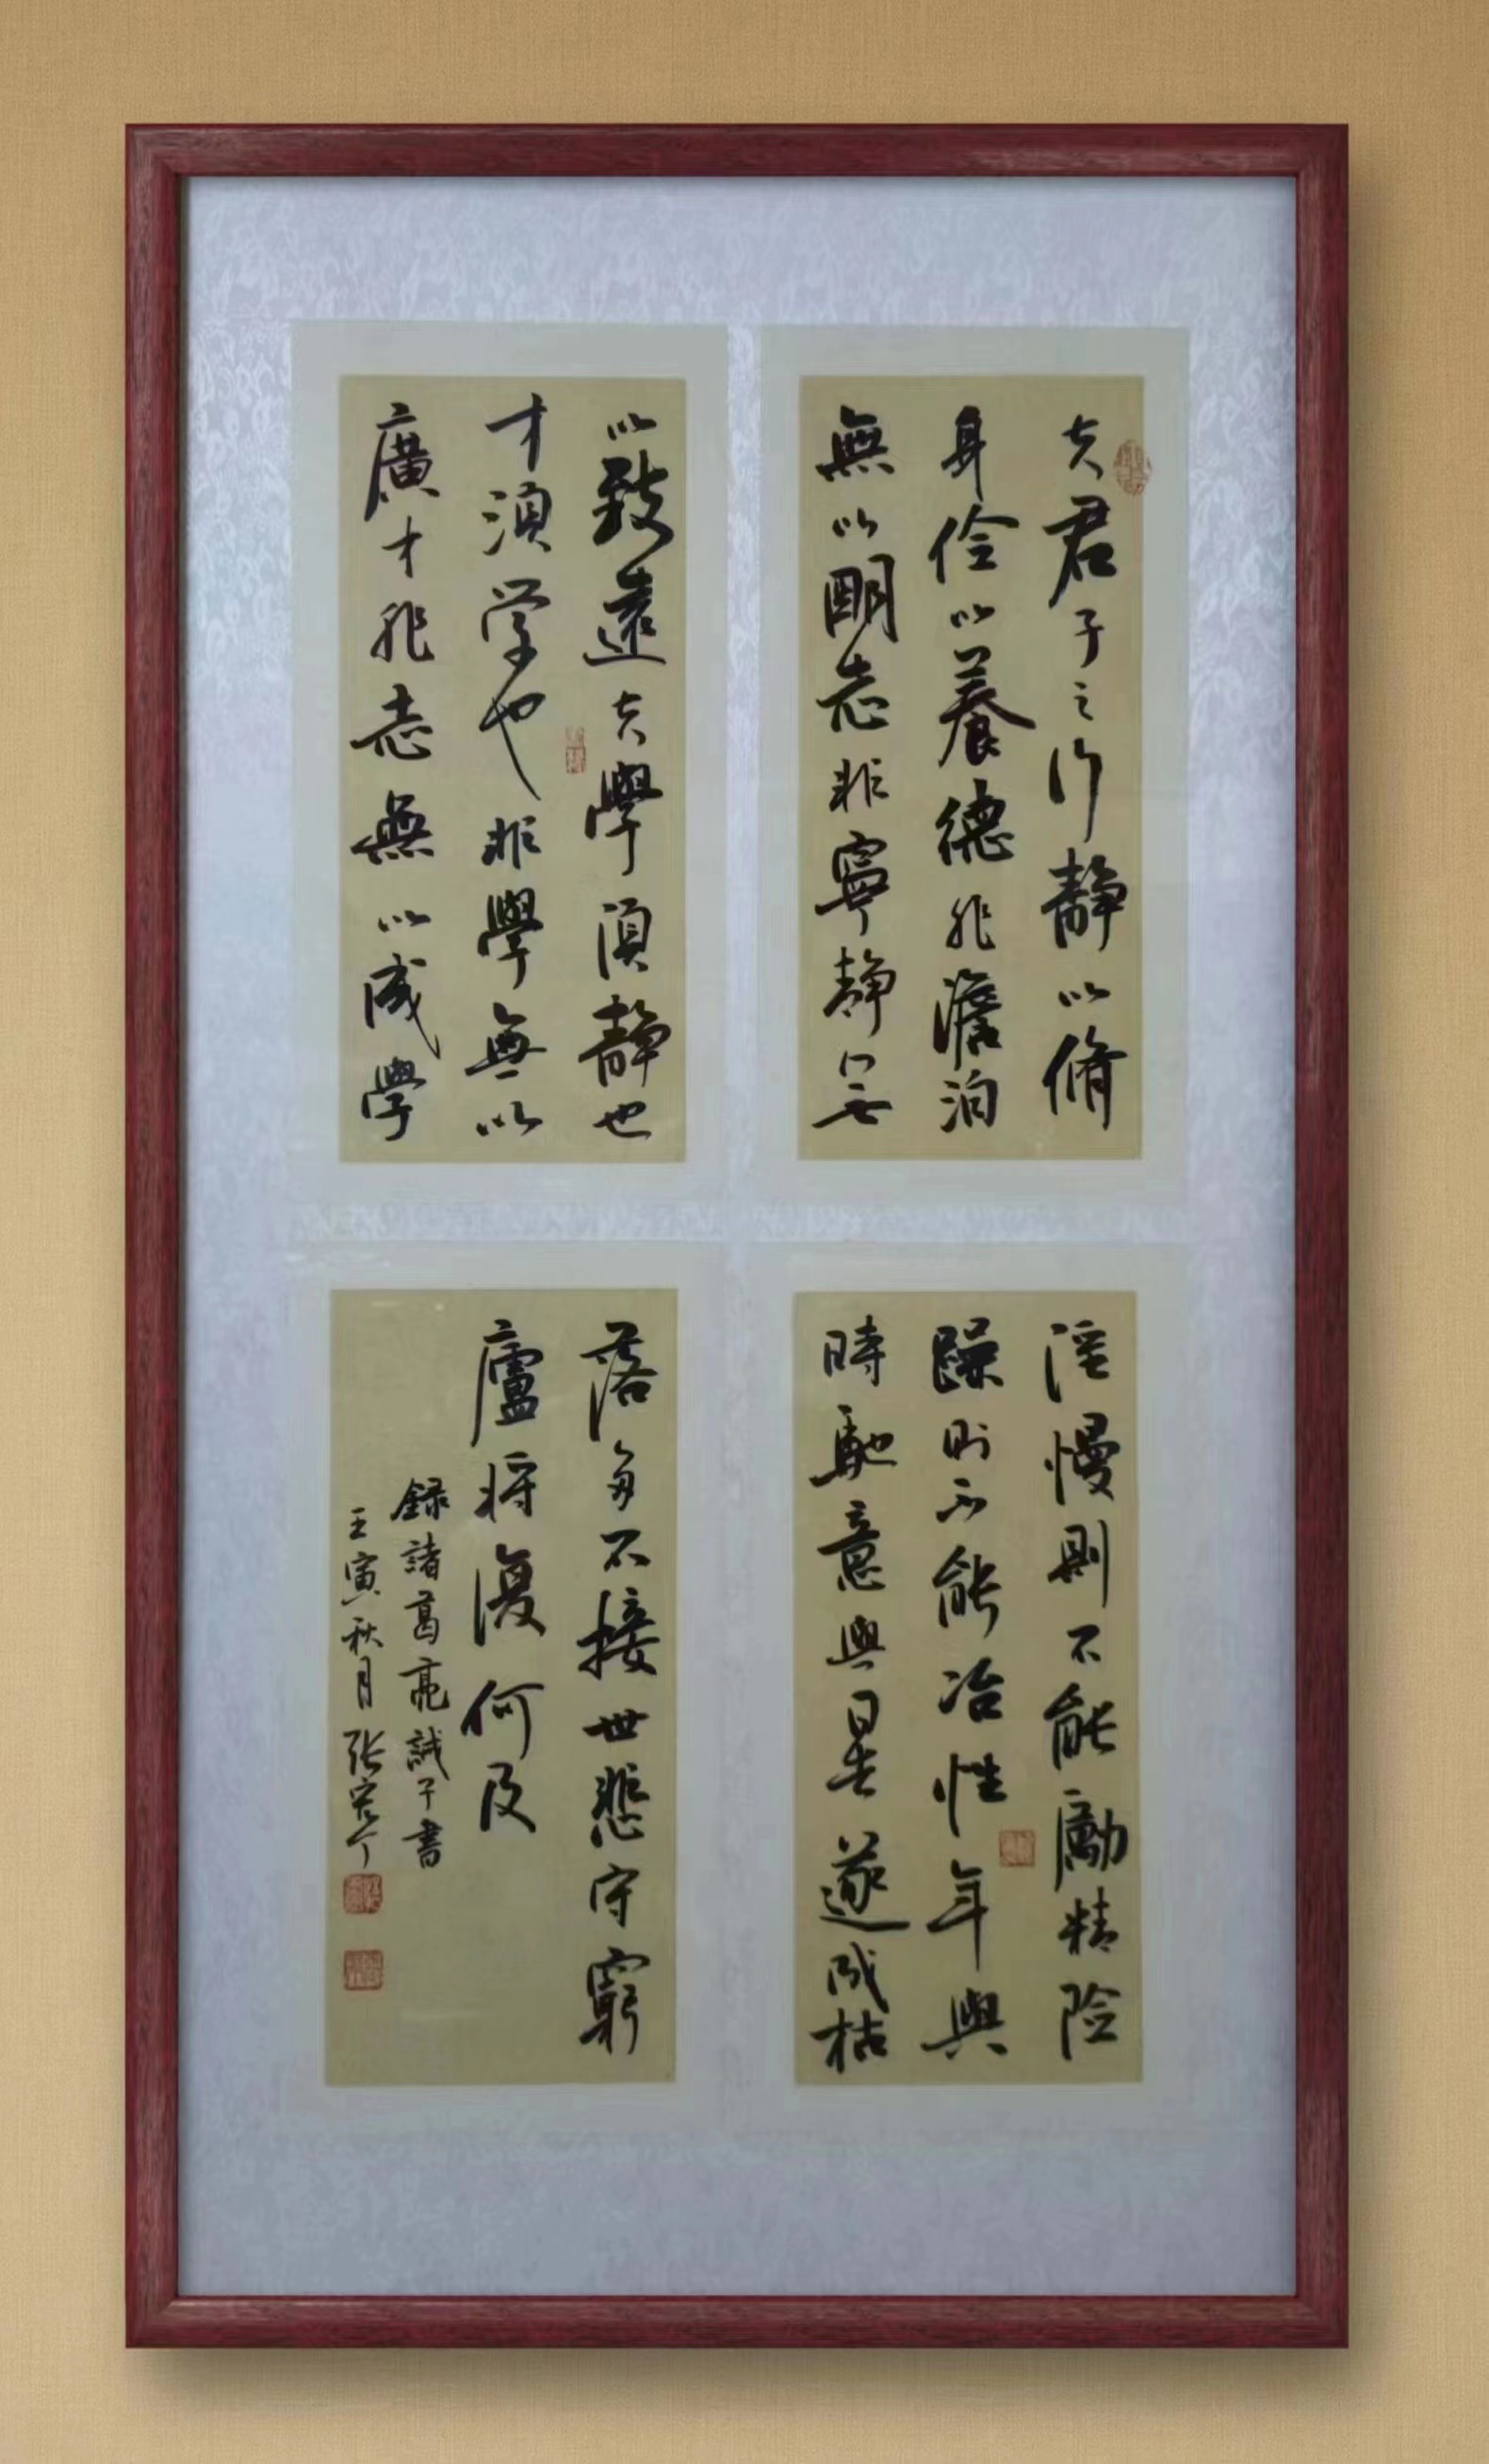 夫君子之行靜以脩
身儉以養德非澹泊
無以明志非寧靜無
以致遠夫學須靜也
才須学也非學無以
廣才非志無以成學
淫慢則不能勵精險
躁則不能冶性年與
時馳意與日去遂成枯
落多不接世悲守窮
廬将復何及
録諸葛亮誡子書
壬寅秋月张